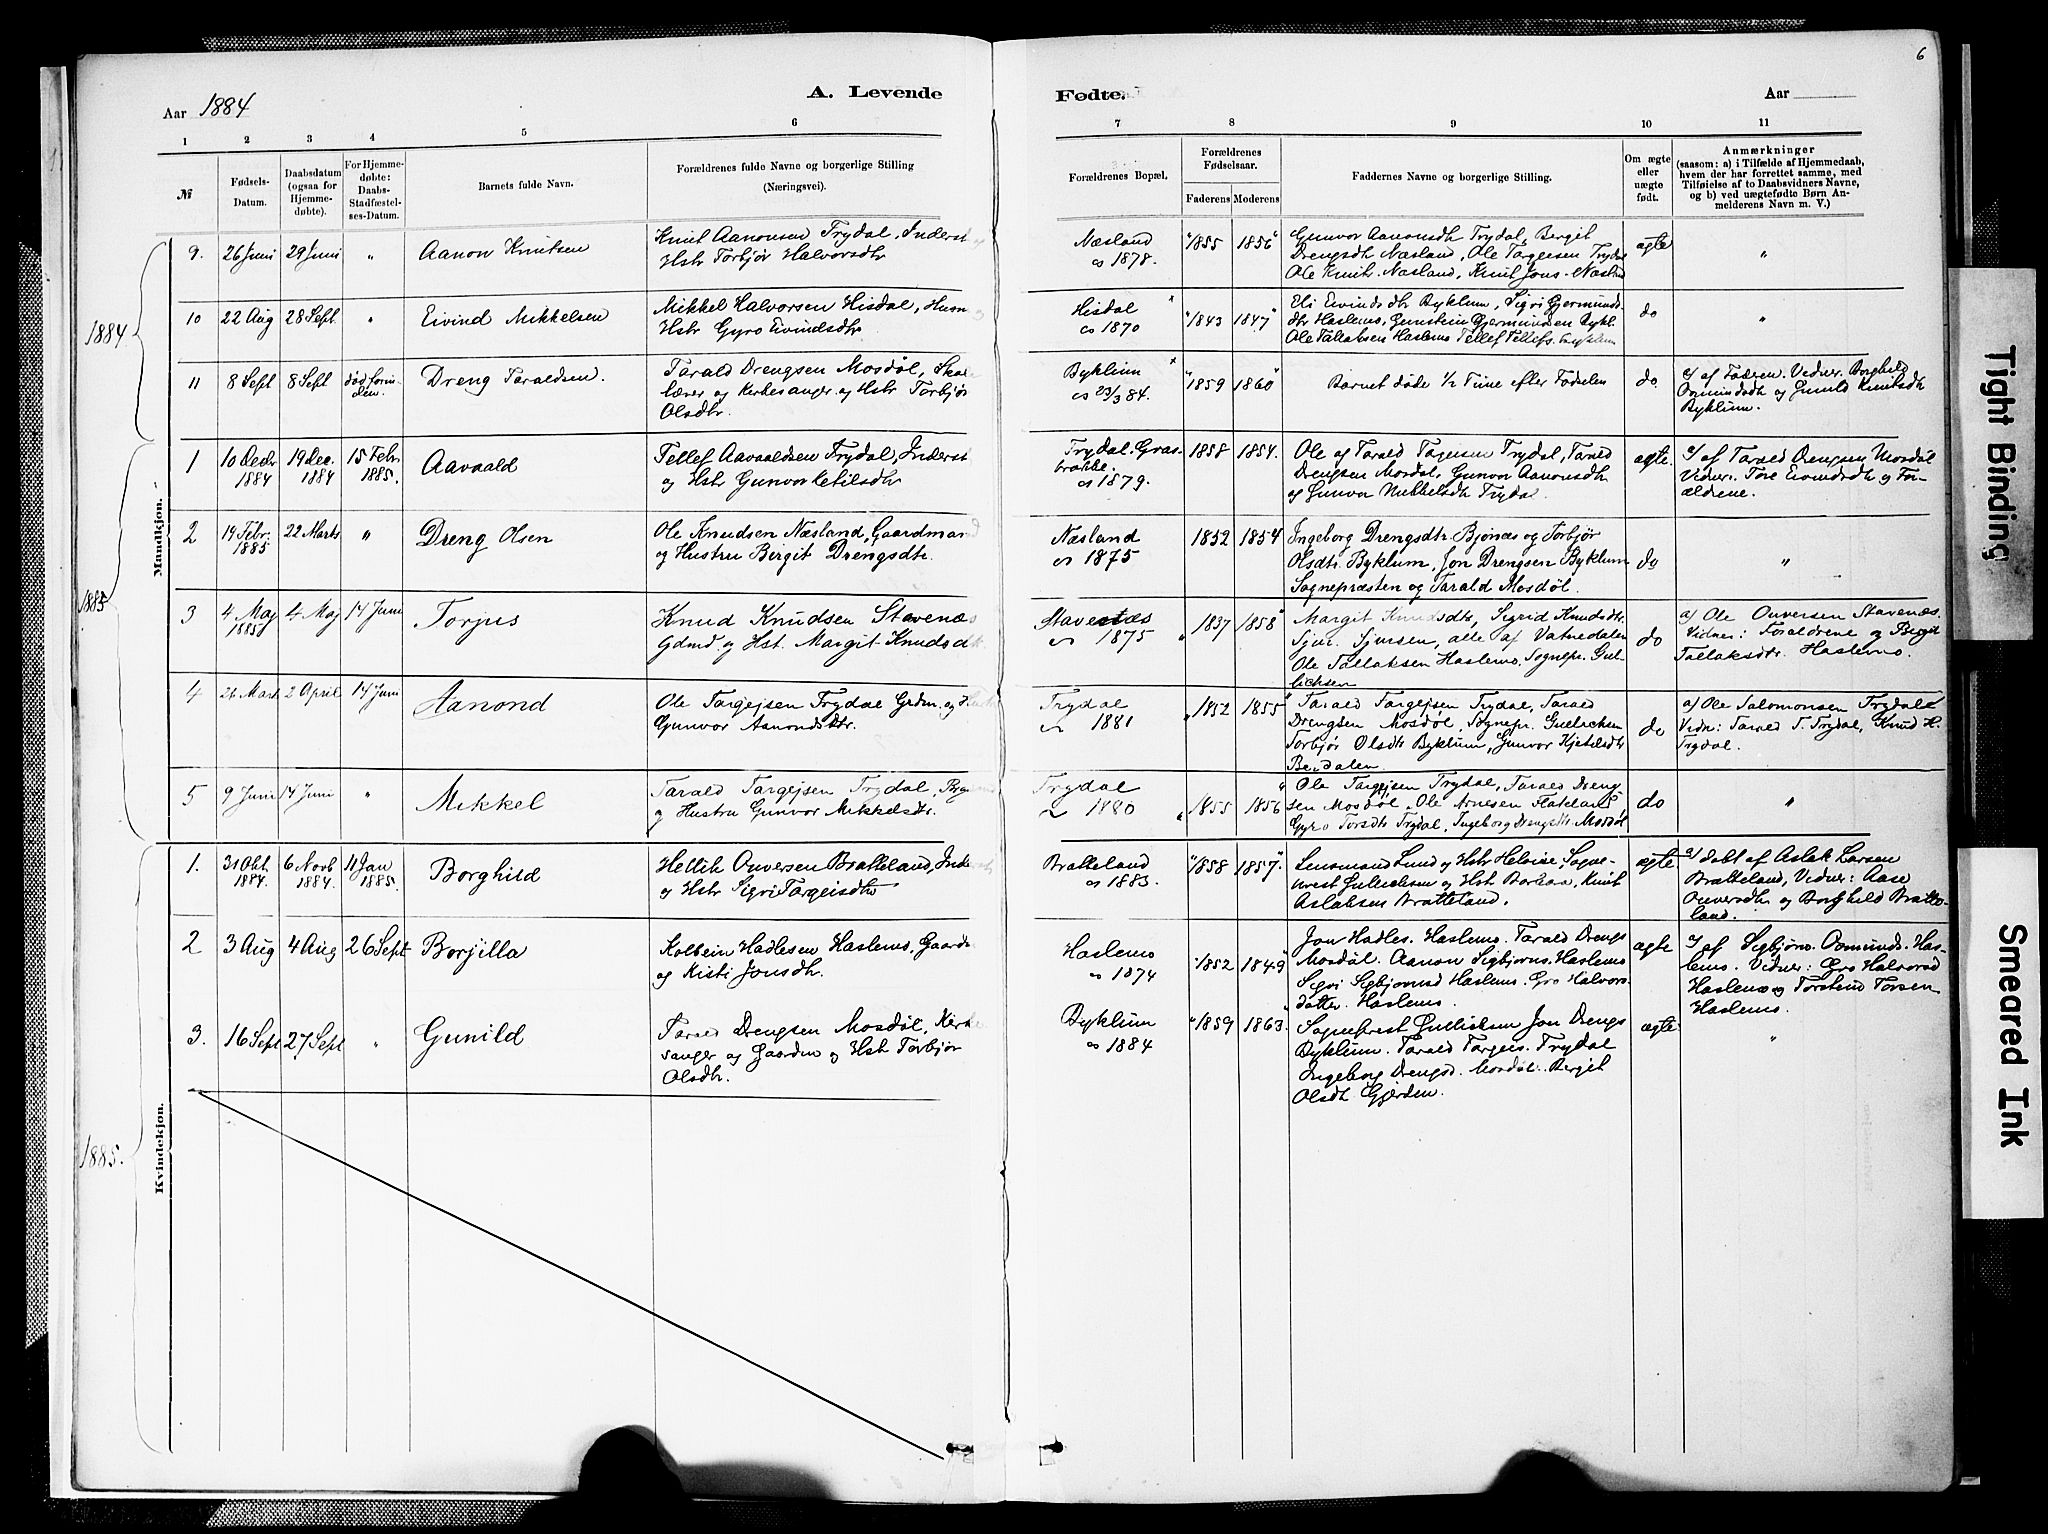 6
Aar 1884
A. Levende
Fødte.
Aar
1 2 3 4 5 6 7 8 9 10 11
№
Fødsels-
Datum.
Daabsdatum
(ogsaa for
Hjemme-
døbte).
For Hjemme-
døbte:
Daabs-
Stadfæstel-
ses-Datum.
Barnets fulde Navn.
Forældrenes fulde Navne og borgerlige Stilling
(Næringsvei).
Forældrenes Bopæl.
Forældrenes
Fødselsaar.
Faderens Moderens
Faddernes Navne og borgerlige Stilling.
Om ægte
eller
uægte
født.
Anmærkninger
(saasom: a) i Tilfælde af Hjemmedaab,
hvem der har forrettet samme, med
Tilføielse af to Daabsvidners Navne,
og b) ved uægtefødte Børn An-
melderens Navn m. V.)
1884
Mandkjøn.
9. 26 Juni 29 Juni " Aanon Knutsen
Knut Aanonsen Trydal, Inderst og
Hstr Torbjør Halvorsdtr
Næsland
cs 1878.
1855 1856
Gunvor Aanonsdtr Trydal, Bergit
Drengsdtr Næsland, Ole Targeisen Trydal
Ole Knits. Næsland, Knut Jons. Næsland
ægte "
10 22 Aug 28 Sept " Eivind Mikkelsen
Mikkel Halvorsen Hisdal, Husm og
Hstr Gyro Eivindsdtr
Hisdal
cs 1870
1843 1847
Eivindsdtr Byklum, Sigri Gjermunds
dtr Haslemo, Gunstein Gjermundsen Bykl.
Ole Tallaksen Haslemo Tellef Tellefs. Byklum
do "
11 8 Sept 8 Sept død forin-
den. Dreng Taraldsen.
Tarald Drengsen Mosdøl, Sko-
lærer og Kirkesanger og Hstr Torbjør
Olsdtr.
Byklum
cs 23/3 84.
1859 1860
Barnet døde 1/2 Time efter Fødselen
do
a/ af Faderen. Vidner Borghild
Osmundsdtr og Gunild Knutsdtr
Byklum.
1885
1 10 Decbr
1884 19 Dec.
1884 15 Febr.
1885. Aavaald
Tellef Aavaaldsen Trydal, Inderst
og Hstr Gunvor Ketilsdtr
Trydal. Gras-
brokke.
cs 1879.
1858 1854.
Ole og Tarald Targeisen Trydal, Tarald
Drengsen Mosdøl, Gunvor Aanonsdtr
og Gunvor Mikkelsdtr Trydal
ægte.
a/ af Tarald Drengsen Mosdøl
Vidner: Tore Eivindsdtr og For-
ældrene.
2 14 Febr.
1885 22 Marts " Dreng Olsen
Ole Knudsen Næsland, Gaardmand
og Hustru Bergit Drengsdtr.
Næsland
cs 1875
1852 1854
Ingeborg Drengsdtr. Bjønes og Torbjør
Olsdtr. Byklum, Jon Drengsen Byklum
Sognepræsten og Tarald Mosdøl.
do "
3 4 Maj
1885 4 Maj 14 Juni Torjus
Knud Knudsen Stavenæs
Gdmd. og Hst. Margit Knudsdtr
Stavenæs
cs 1875
1837 1858
Margit Knudsdtr, Sigrid Knudsdtr.
Sjur Sjursen, alle af Vatnedalen
Ole Tallaksen Haslemo. Sognepr. Gul-
licksen
do
a) Ole Onversen Stavenæs.
Vidner: Forældrene og Bergit
Tallaksdtr. Haslemo.
4 26 Marts 2 April 14 Juni Aanond
Ole Targejsen Trydal Grdm. og Hustru
Gunvor Aanondsdtr.
Trydal
cs 1881
1852 1855
Tarald Targejsen Trydal, Tarald
Drengsen Mosdøl, Sognepr. Gullicksen
Torbjør Olsdtr Byklum, Gunvor Kjetilsdtr
Berdalen
do
a) Ole Salomonsen Trydal
Vidn: Tarald T. Trydal, Knud H.
Trydal.
5 9 Juni 14 Juni " Mikkel
Tarald Targejsen Trydal,
og Hustru Gunvor Mikkelsdtr.
Trydal
cs 1880
1855 1856
Ole Targejsen Trydal, Tarald Dreng
sen Mosdøl, Ole Arnesen Flateland,
Gyro Torsdtr Trydal, Ingeborg Drengsdtr Mosdøl
do "
1885.
Kvindekjøn.
1. 31 Okt
1884. 6 Novb
1884. 11 Jan
1885. Borghild
Hellik Onversen Bratteland, Inderst
og Hstr Sigri Targeisdtr
Bratteland
cs 1883.
1858 1857
Lensmand Lund og Hstr Heloise, Sogne-
prest Gullicksen og Hst Barbra, Knut
Aslaksen Bratteland.
ægte
a) døbt af Aslak Larsen
Bratteland, Vidner: Aase
Onversdtr og Borghild Bratte-
land.
2 3 Aug 4 Aug 26 Sept Borjilla
Kolbein Hadlesen Haslemo, Gaardm
og Kisti Jonsdtr.
Haslemo
cs 1874
1852 1849
Jon Hadles. Haslemo. Tarald Drengs
Mosdøl. Aanon Sigbjørns. Haslemo
Sigri Sigbjørnsd Haslemo. Gro Halvors-
datter. Haslemo.
ægte
a/ af Sigbjørn Osmunds. Has-
lemo. Vidner: Gro Halvorsd
Haslemo og Torstein Torsen
Haslemo.
3. 16 Sept 27 Sept " Gunild
Tarald Drengsen Mosdøl, Kirke
sanger og Gaardm og Hstr Torbjør
Olsdtr.
Byklum
cs 1884
1859 1863.
Sogneprest Gullicksen Jon Drengs
Byklum. Tarald Targeis. Trydal
Ingeborg Drengsd. Mosdøl. Bergit
Olsdtr Gjerden.
ægte "
Tight Binding
Smeared Ink